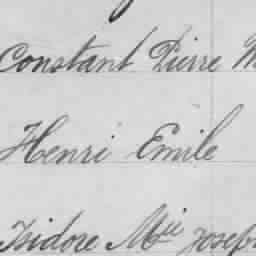 Constant Pierre M
Henri Emile
Isidore Mie Joseph